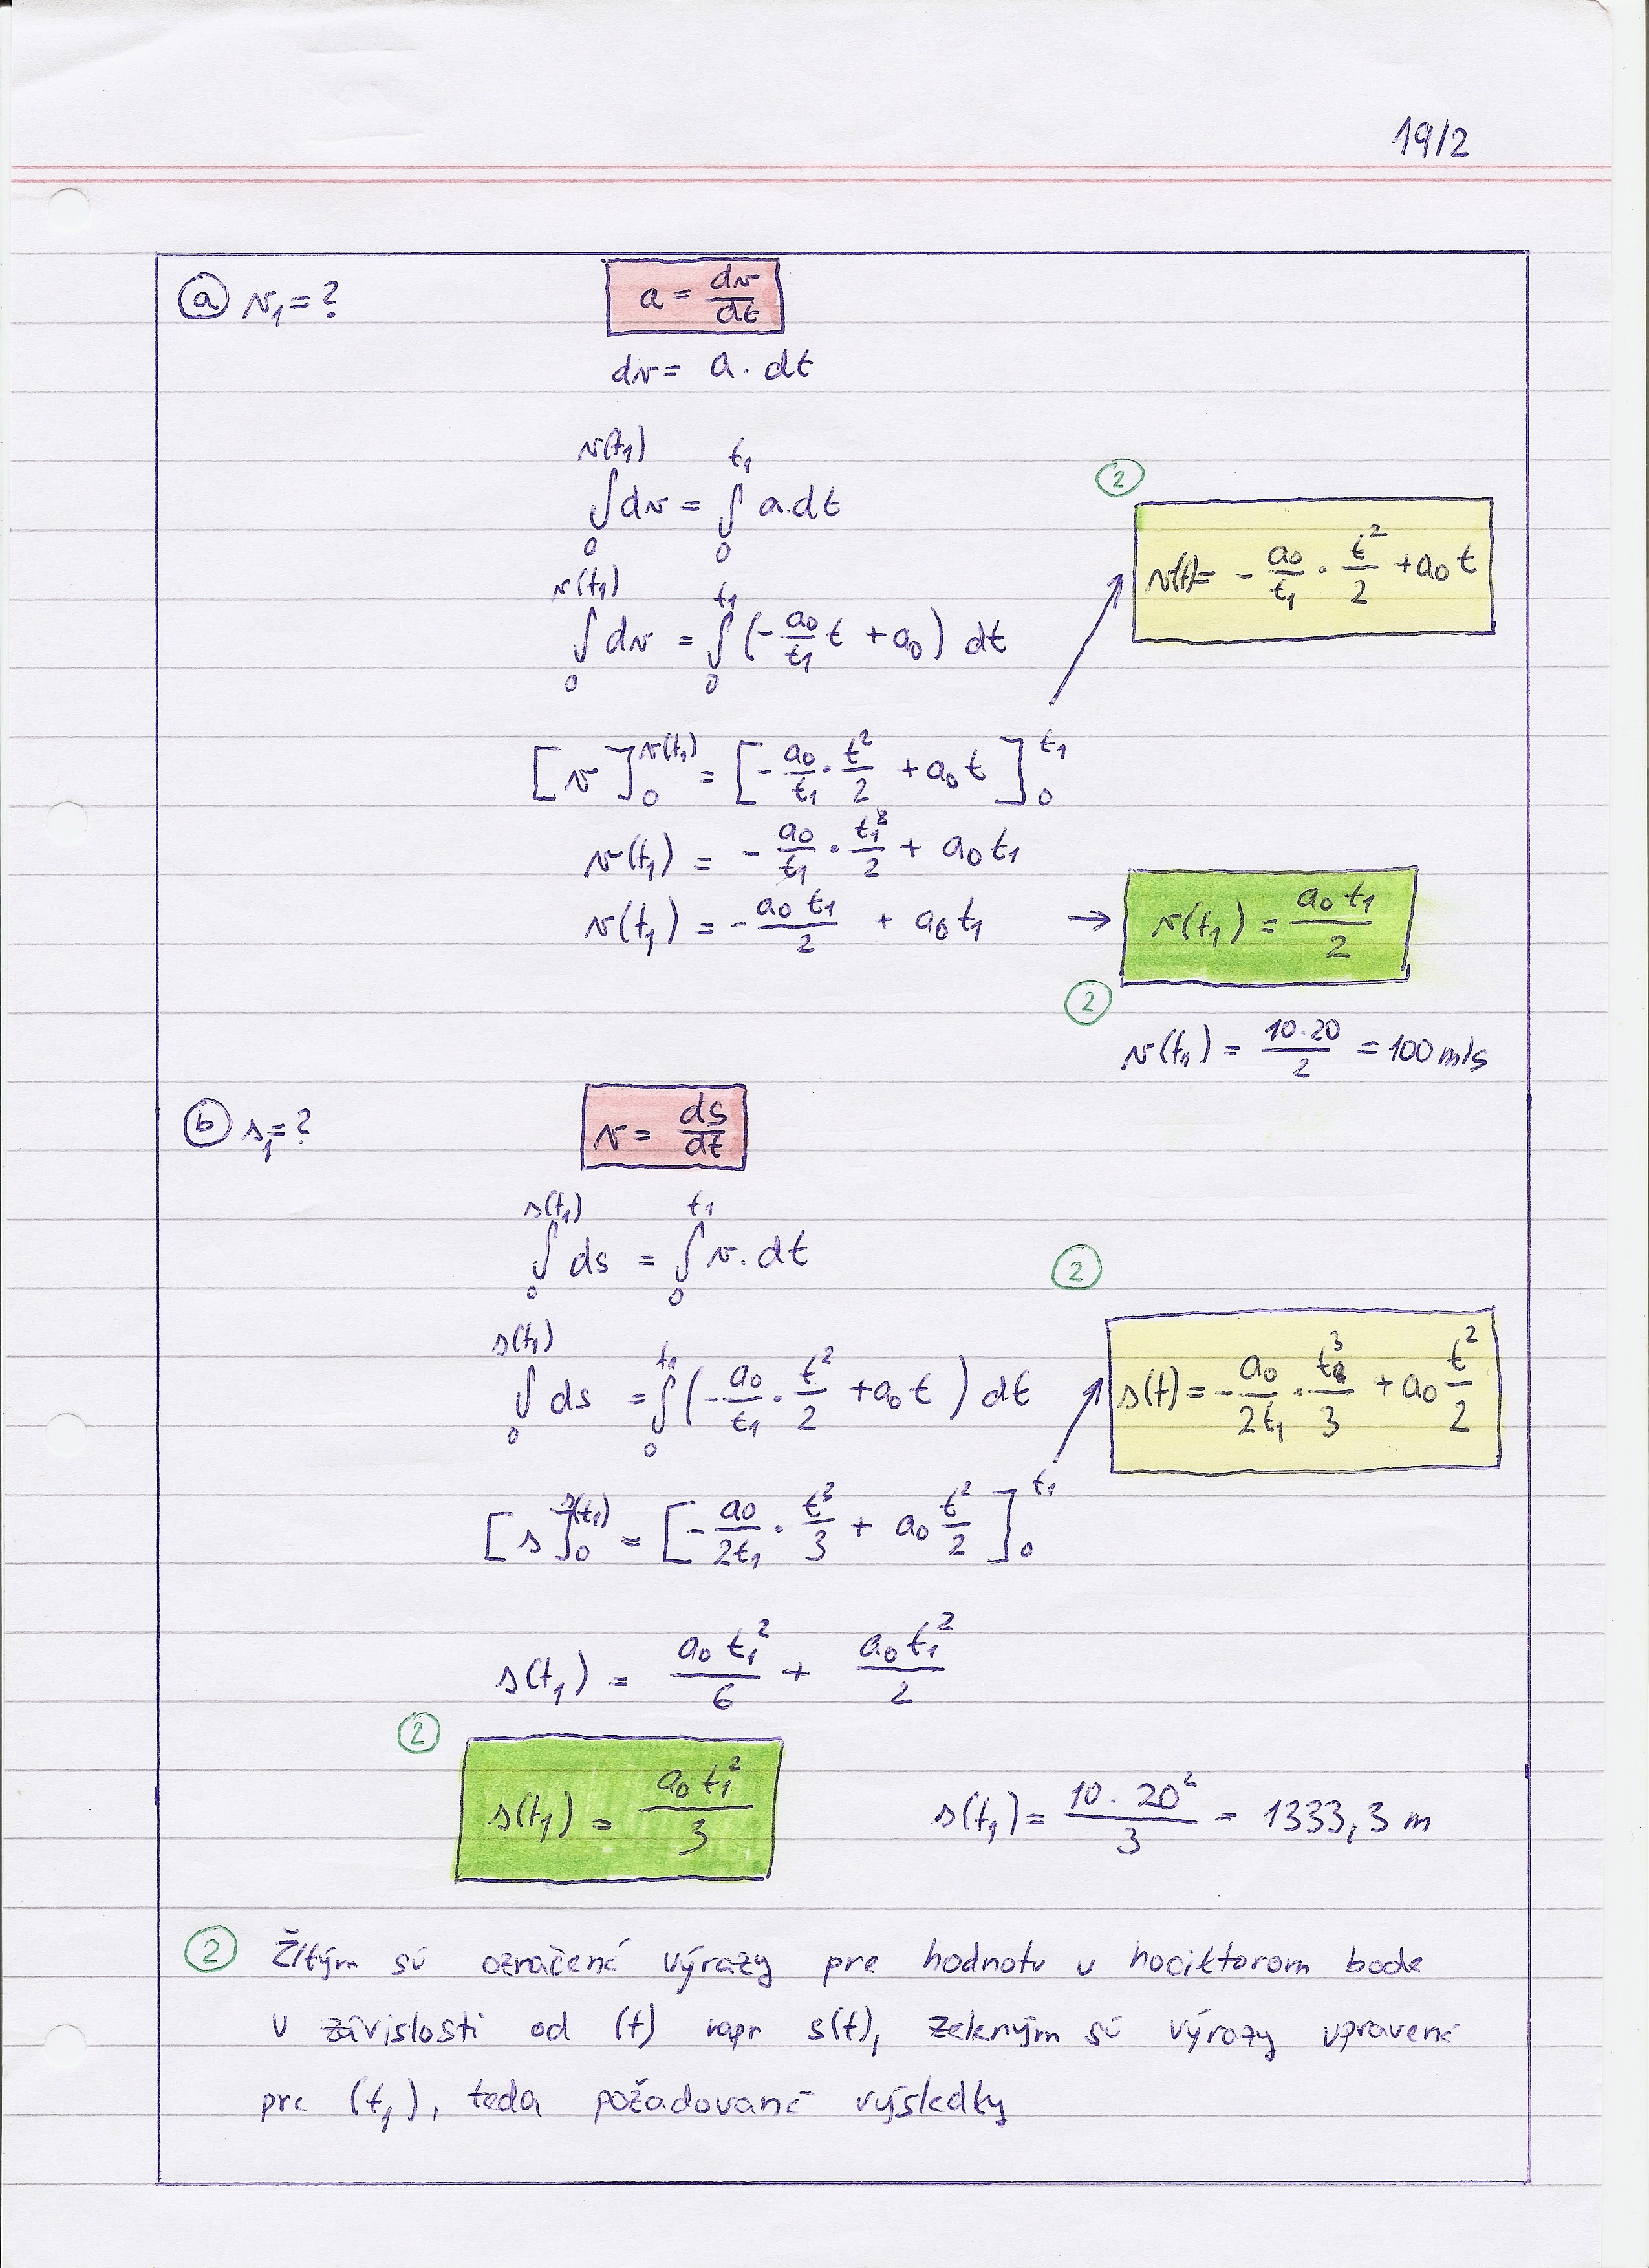 19/2
a v₁ = ?
a = dv/dt
dv = a · dt
∫₀^{v(t₁)} dv = ∫₀^{t₁} a.dt
2
v(t) = - a₀/t₁ · t²/2 + a₀t
∫₀^{v(t₁)} dv = ∫₀^{t₁} (- a₀/t₁ t + a₀) dt
[v]₀^{v(t₁)} = [- a₀/t₁ · t²/2 + a₀t]₀^{t₁}
v(t₁) = - a₀/t₁ · t₁²/2 + a₀t₁
v(t₁) = - a₀t₁/2 + a₀t₁ → v(t₁) = a₀t₁/2
2
v(t₁) = 10·20/2 = 100 m/s
b s₁ = ?
v = ds/dt
∫₀^{s(t₁)} ds = ∫₀^{t₁} v. dt
2
∫₀^{s(t₁)} ds = ∫₀^{t₁} (- a₀/t₁ · t²/2 + a₀t) dt
s(t) = - a₀/2t₁ · t³/3 + a₀ t²/2
[s]₀^{s(t₁)} = [- a₀/2t₁ · t³/3 + a₀ t²/2]₀^{t₁}
s(t₁) = a₀t₁²/6 + a₀t₁²/2
2
s(t₁) = a₀t₁²/3
s(t₁) = 10 · 20²/3 = 1333,3 m
2 Žltým sú označené výrazy pre hodnotu v hociktorom bode
v závislosti od (t) napr s(t), zeleným sú výrazy upravené
pre (t₁), teda požadované výsledky